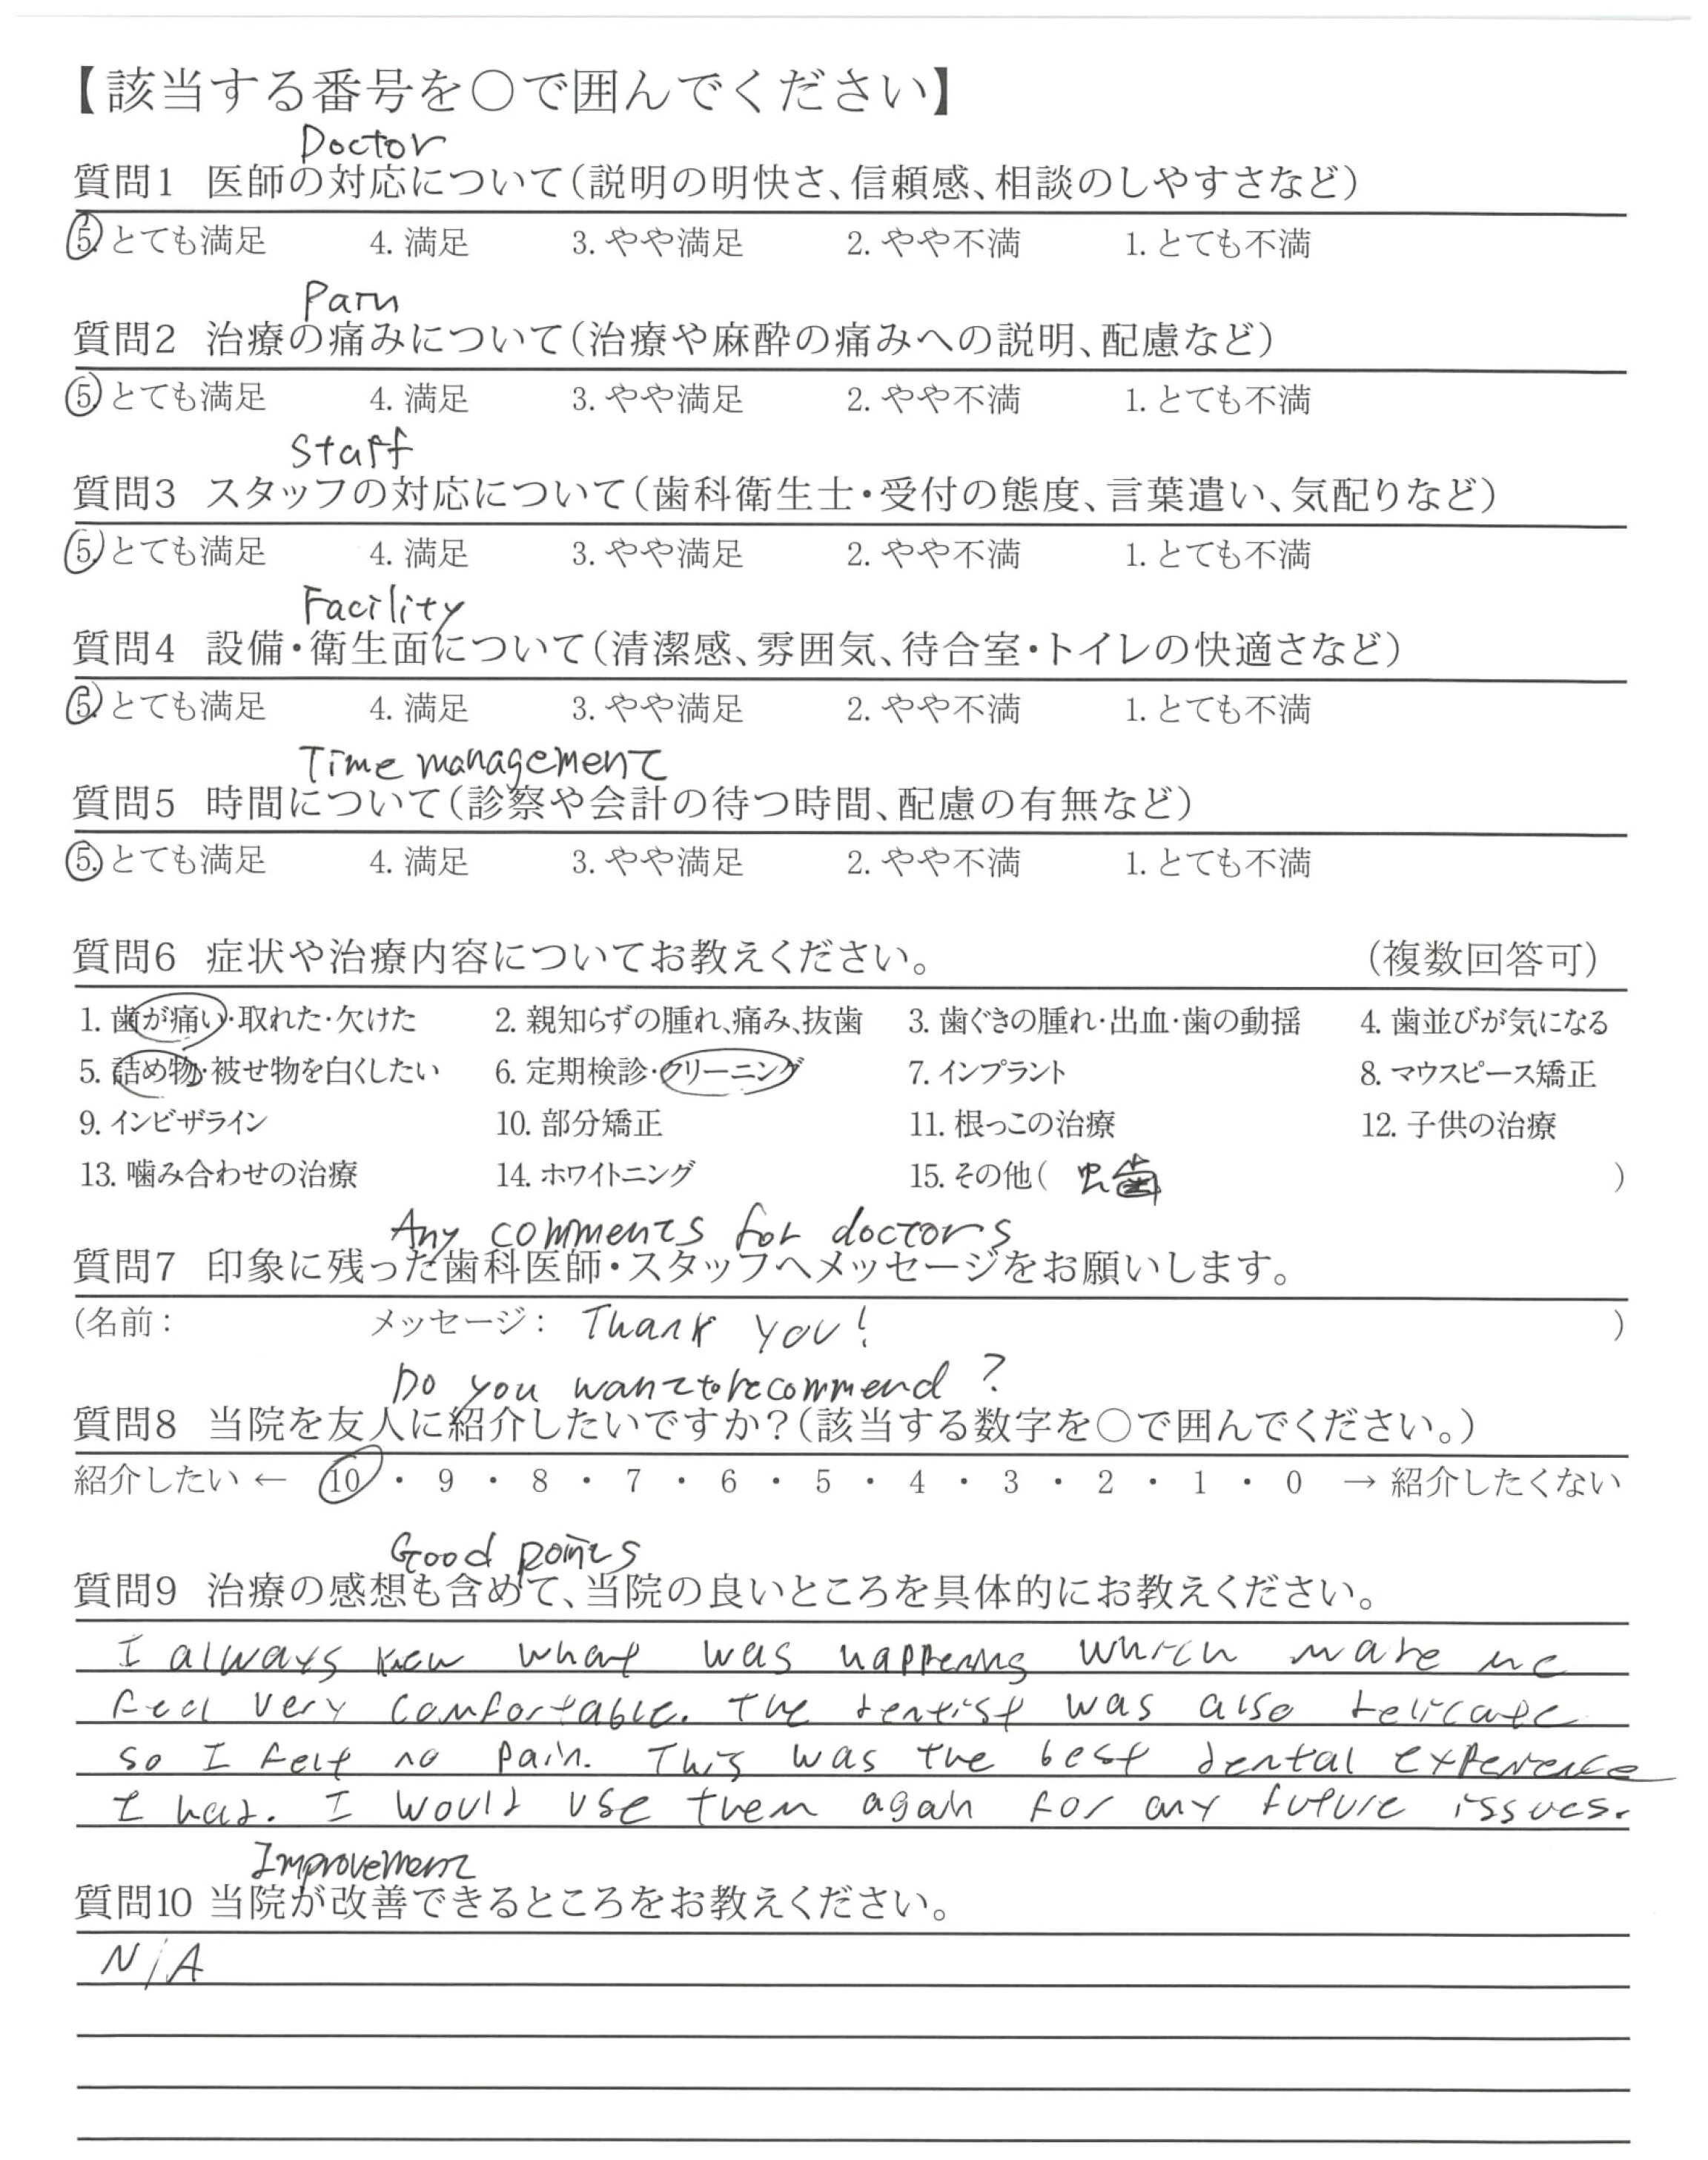 【該当する番号を○で囲んでください】
Doctor
質問1 医師の対応について(説明の明快さ、信頼感、相談のしやすさなど)
5. とても満足 4. 満足 3. やや満足 2. やや不満 1. とても不満
Pain
質問2 治療の痛みについて(治療や麻酔の痛みへの説明、配慮など)
5. とても満足 4. 満足 3. やや満足 2. やや不満 1. とても不満
Staff
質問3 スタッフの対応について(歯科衛生士・受付の態度、言葉遣い、気配りなど)
5. とても満足 4. 満足 3. やや満足 2. やや不満 1. とても不満
Facility
質問4 設備・衛生面について(清潔感、雰囲気、待合室・トイレの快適さなど)
5. とても満足 4. 満足 3. やや満足 2. やや不満 1. とても不満
Time management
質問5 時間について(診察や会計の待つ時間、配慮の有無など)
5. とても満足 4. 満足 3. やや満足 2. やや不満 1. とても不満
質問6 症状や治療内容についてお教えください。 (複数回答可)
1. 歯が痛い・取れた・欠けた 2. 親知らずの腫れ、痛み、抜歯 3. 歯ぐきの腫れ・出血・歯の動揺 4. 歯並びが気になる
5. 詰め物・被せ物を白くしたい 6. 定期検診・クリーニング 7. インプラント 8. マウスピース矯正
9. インビザライン 10. 部分矯正 11. 根っこの治療 12. 子供の治療
13. 噛み合わせの治療 14. ホワイトニング 15. その他( 虫歯 )
Any comments for doctors
質問7 印象に残った歯科医師・スタッフへメッセージをお願いします。
(名前: メッセージ: Thank you! )
Do you want to recommend?
質問8 当院を友人に紹介したいですか?(該当する数字を○で囲んでください。)
紹介したい ← 10 ・ 9 ・ 8 ・ 7 ・ 6 ・ 5 ・ 4 ・ 3 ・ 2 ・ 1 ・ 0 → 紹介したくない
Good points
質問9 治療の感想も含めて、当院の良いところを具体的にお教えください。
I always knew what was happening which made me
feel very comfortable. The dentist was also delicate
so I felt no pain. This was the best dental experience
I had. I would use them again for any future issues.
Improvement
質問10 当院が改善できるところをお教えください。
N/A